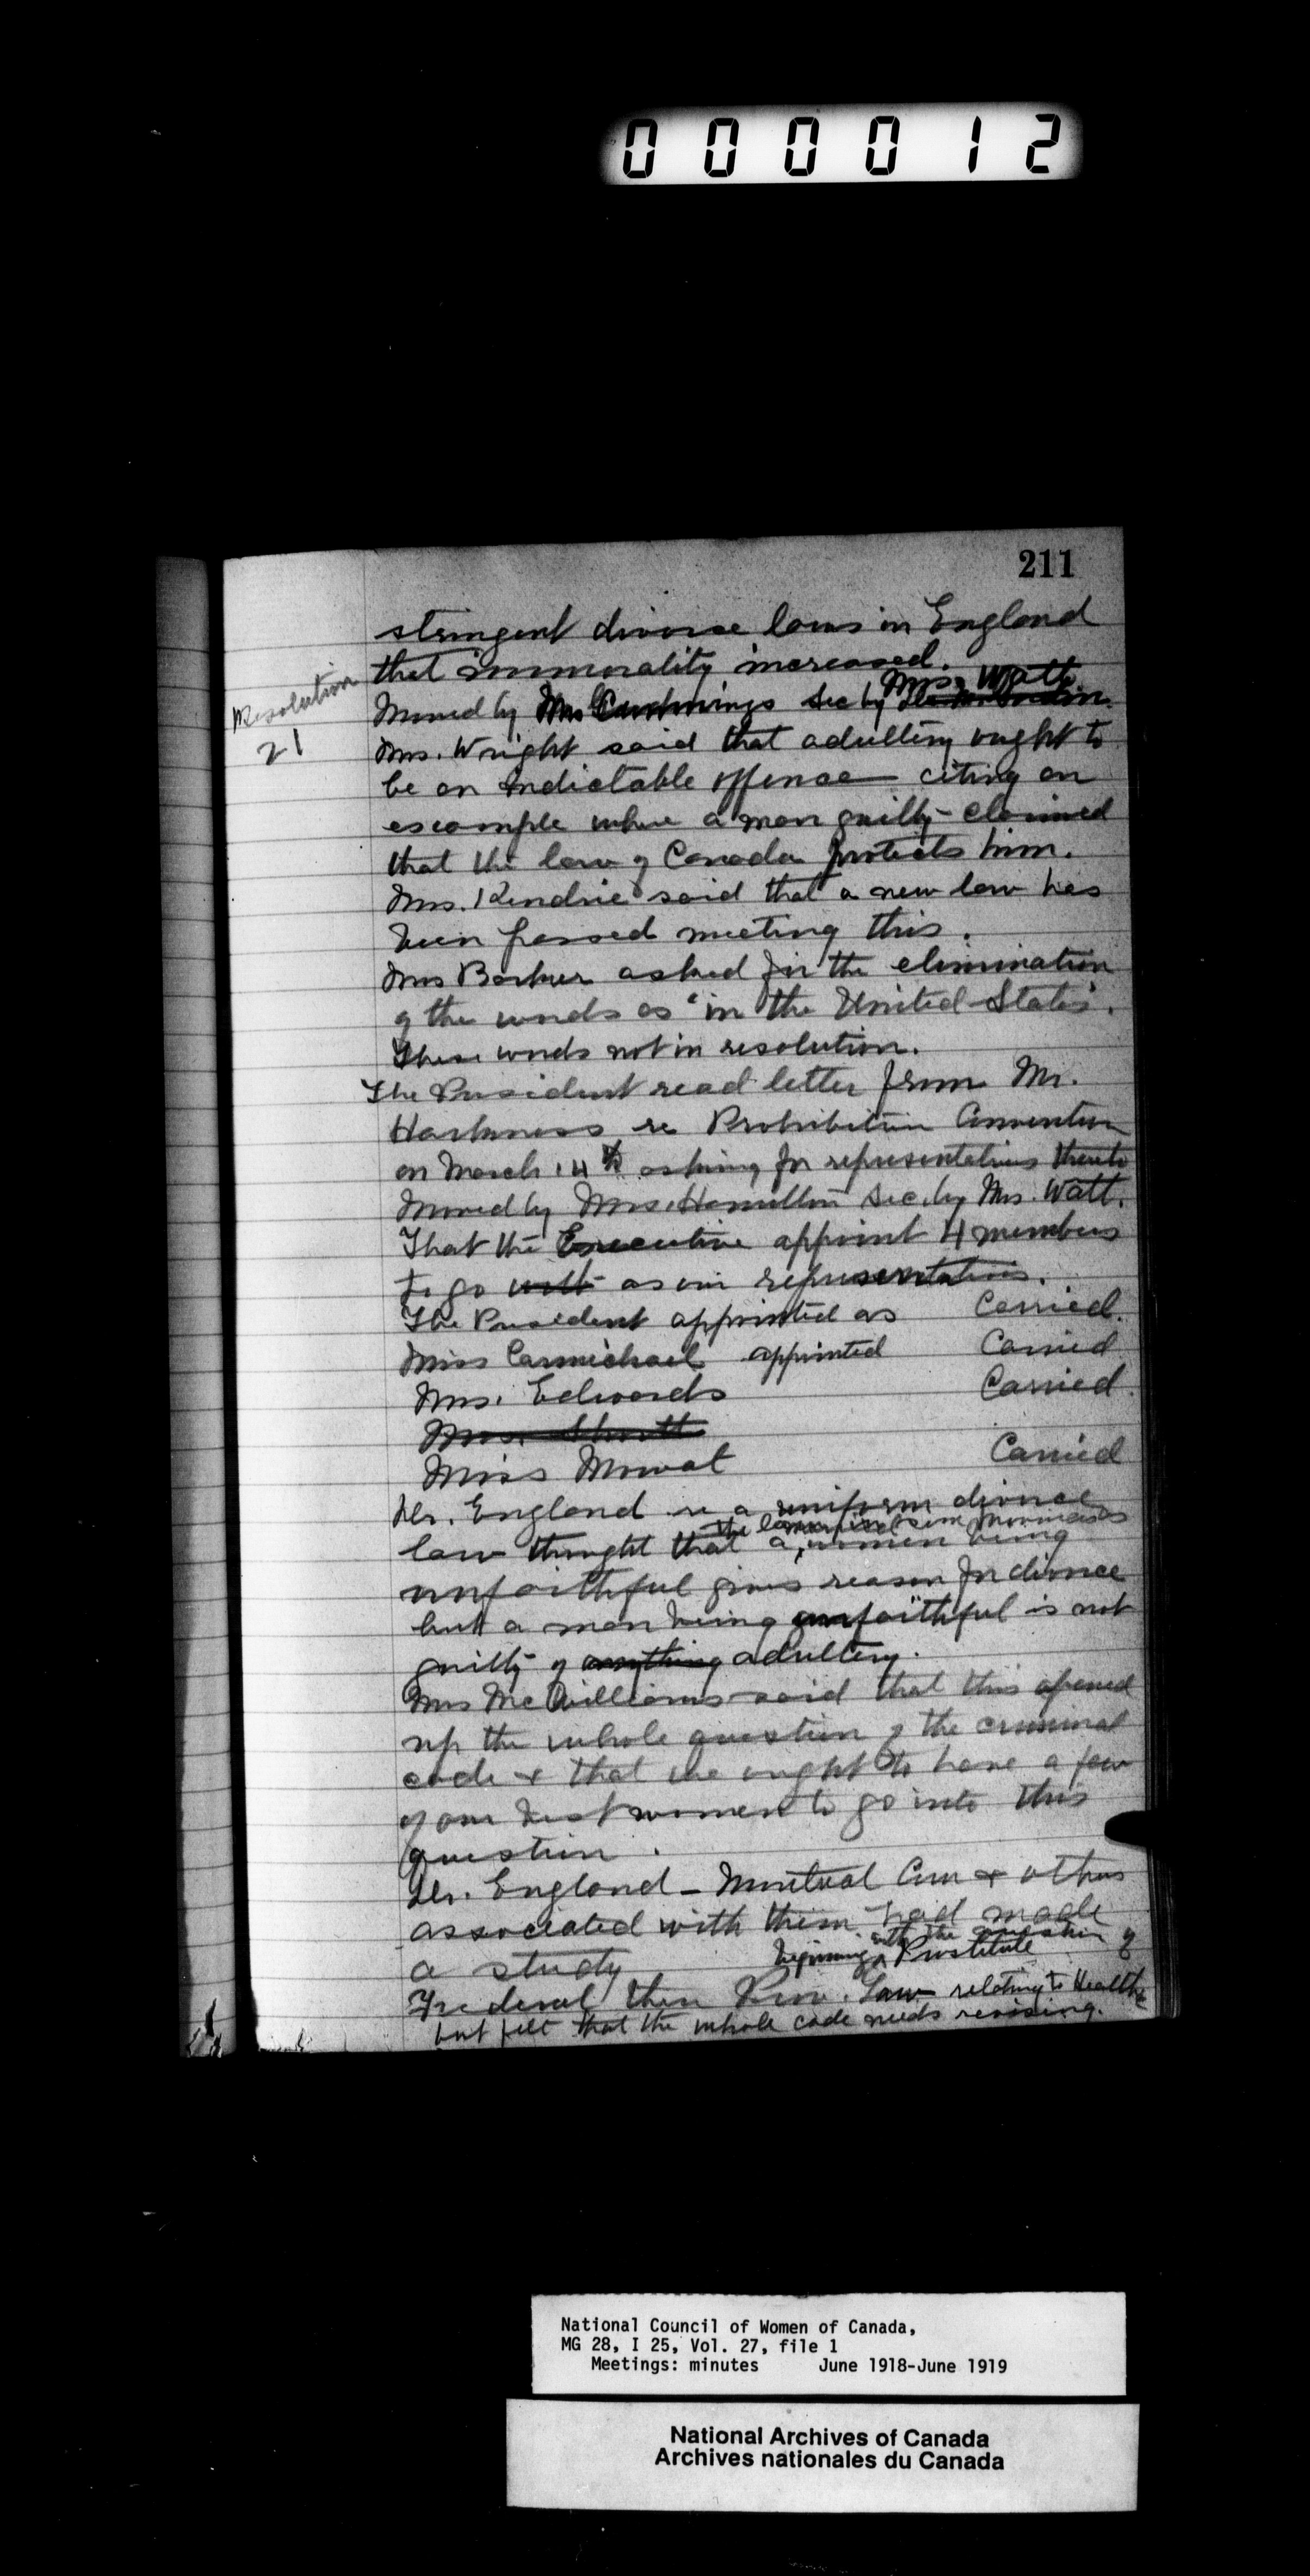 000012
211
stringent divorce laws in England
that immorality increased.
Resolution
21
Mrs. Watt.
Moved by Mrs Cummings Sec by
Mrs. Wright said that adultery ought to
be an indictable offense citing an
escample where a man guilty claimed
that the law of Canada protects him.
Mrs. Kendrie said that a new law has
been passed meeting this.
Mrs Barker asked for the elimination
of the words as "in the United States".
These words not in resolution.
The President read letter from Mr.
Harkness re Prohibition Convention
on March 14th asking for representatives thereto
Moved by Mrs. Hamilton Sec. by Mrs. Watt.
That the Executive appoint 4 members
to go with as our representatives.
The President appointed as Carried.
Miss Carmichael appointed Carried
Mrs. Edwards Carried.
Mrs. Shortt
Miss Mowat Carried
Dr. England re a uniform divorce
the law in some Provinces as
law thought that a women being
unfaithful gives reason for divorce
but a man being unfaithful is not
guilty of anything adultery.
Mrs McWilliams said that this opened
up the whole question of the criminal
code & that we ought to have a few
of our best women to go into this
question.
Dr. England - Montreal Coun & others
associated with them had made
with the question of
a study beginning Prostitute
Frederal then Prov. Law relating to Health
but felt that the whole code needs revising.
National Council of Women of Canada,
MG 28, I 25, Vol. 27, file 1
Meetings: minutes June 1918-June 1919
National Archives of Canada
Archives nationales du Canada